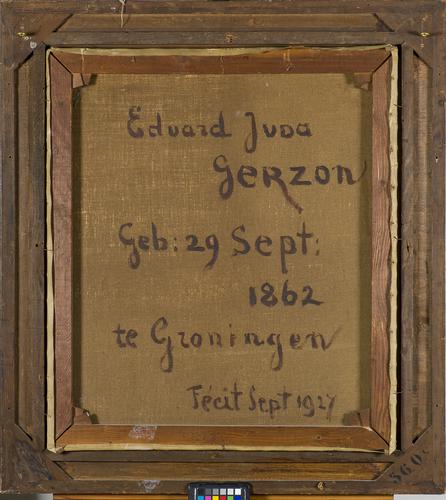 Eduard Juda
Gerzon
Geb: 29 Sept:
1862
te Groningen
Fécit Sept 1927